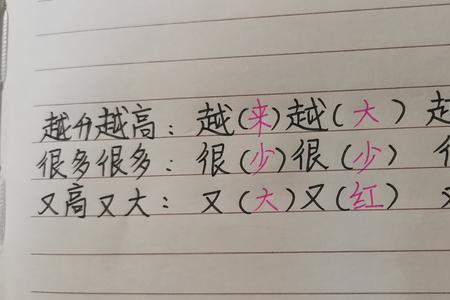 越升越高：越(来)越(大) 越
很多很多：很(少)很(少)
又高又大：又(大)又(红) 又